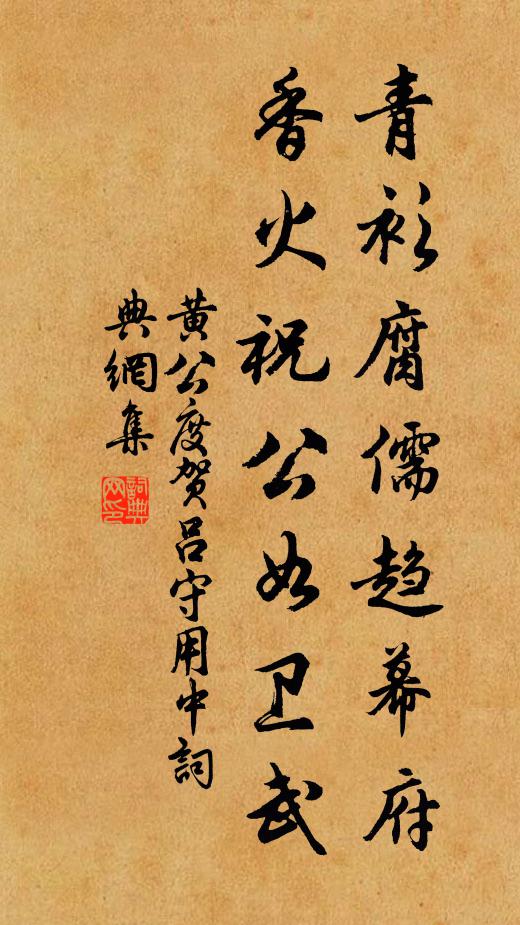 青衫腐儒趋幕府
香火祝公如卫武
黄公度贺吕守用中詞
典網集
詞典
网印